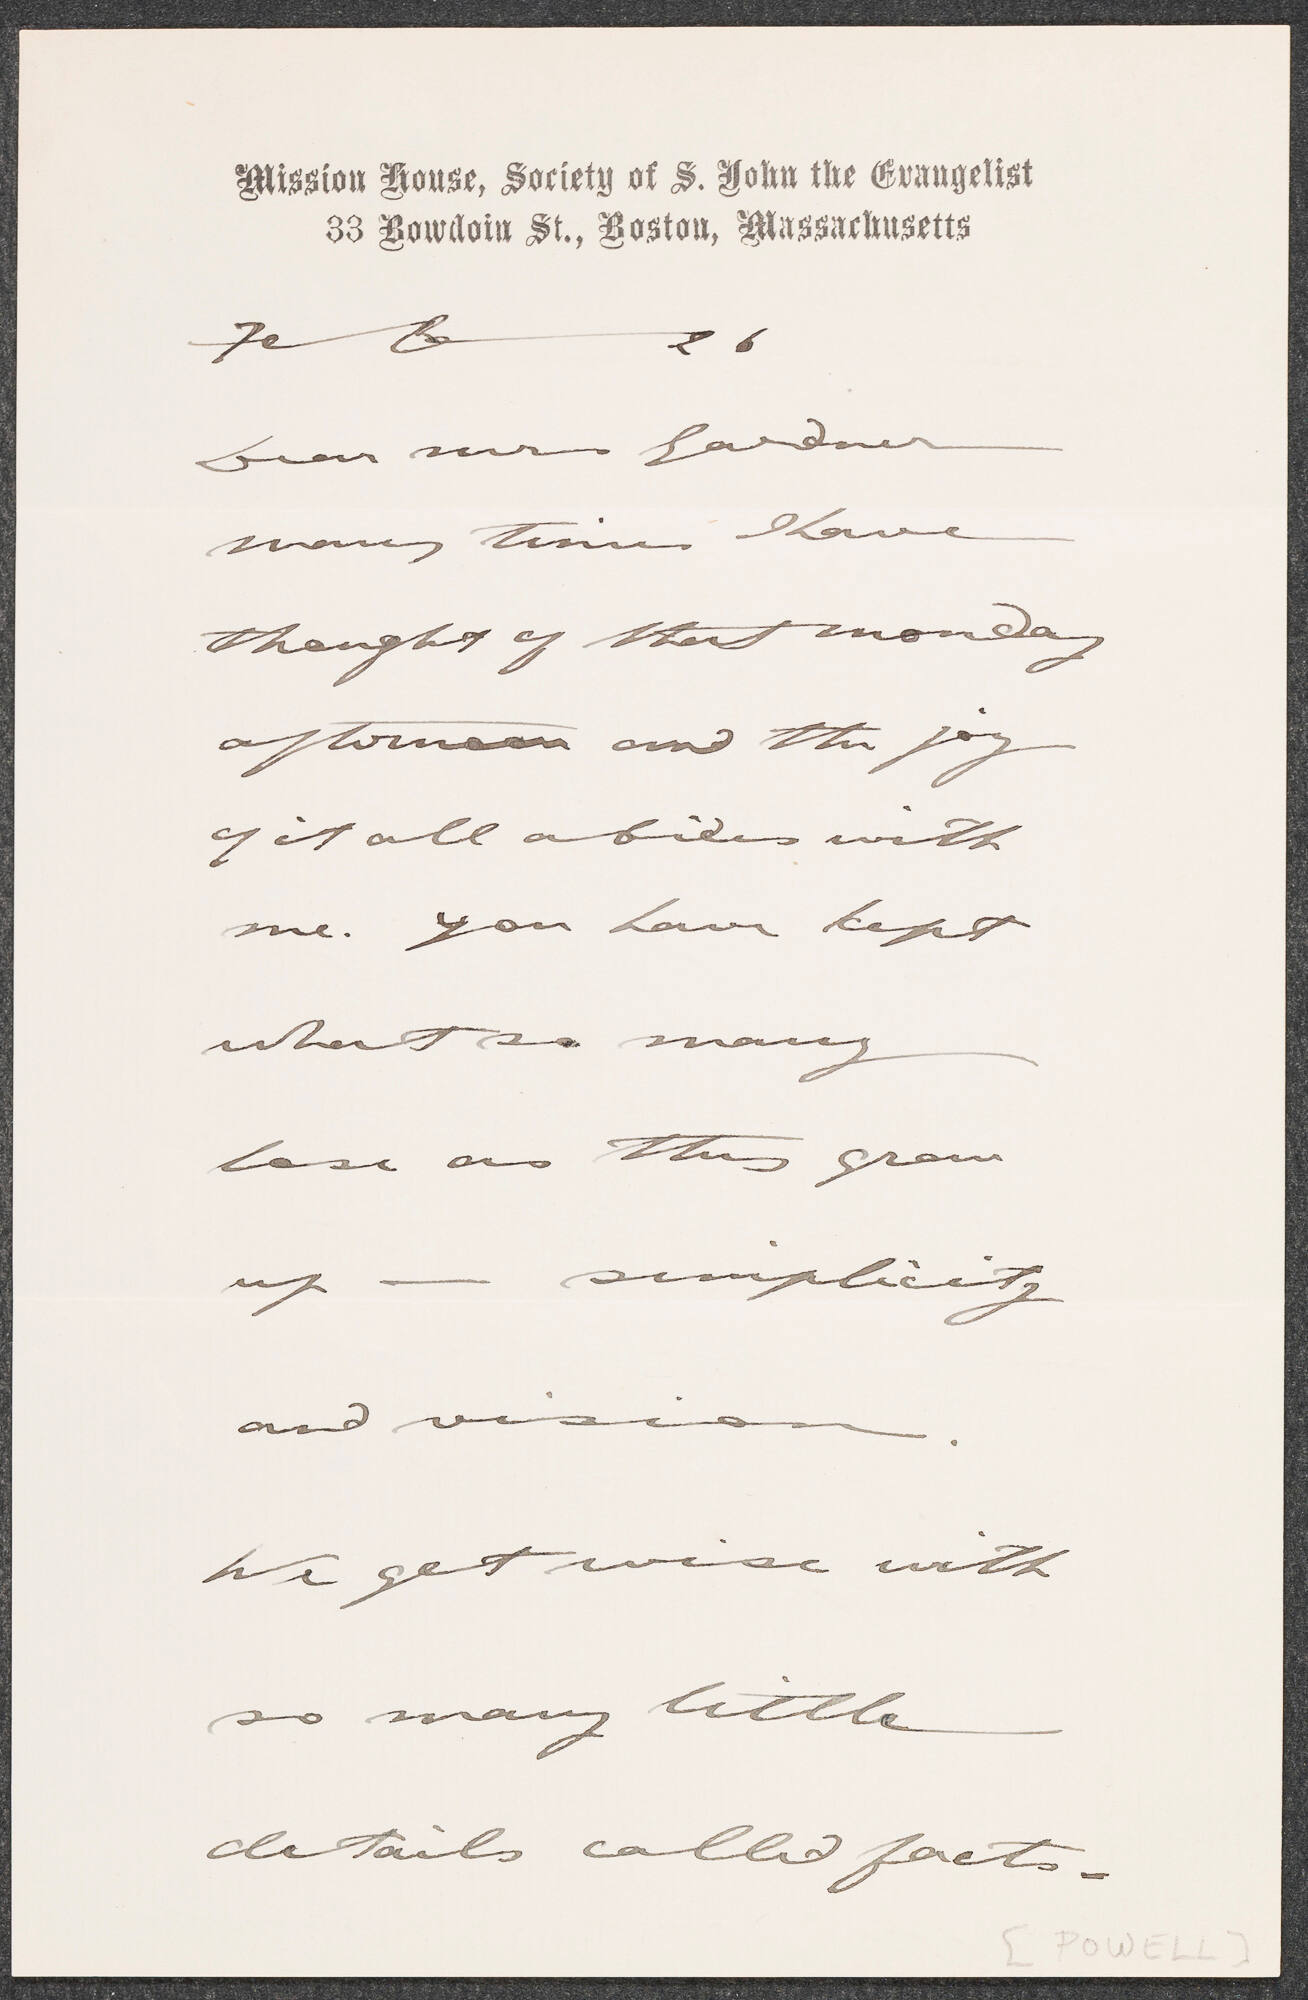 Mission House, Society of S. John the Evangelist
33 Bowdoin St., Boston, Massachusetts
Feb 26
Dear Mrs Gardner
many times I have
thought of that monday
afternoon and the joy
of it all abides with
me. You have kept
what so many
lose as they grow
up — simplicity
and vision.
We get wise with
so many little
details called facts-
[POWELL]